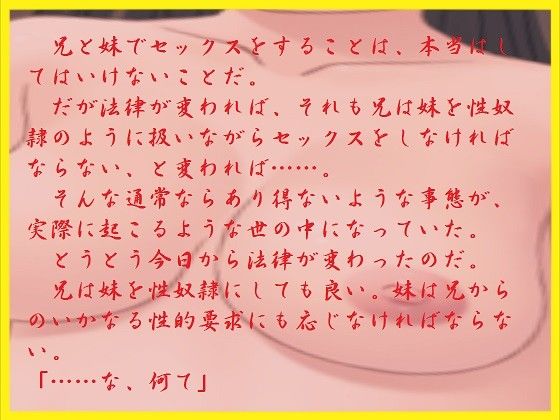 兄と妹でセックスをすることは、本当はし
てはいけないことだ。
だが法律が変われば、それも兄は妹を性奴
隷のように扱いながらセックスをしなければ
ならない、と変われば……。
そんな通常ならあり得ないような事態が、
実際に起こるような世の中になっていた。
とうとう今日から法律が変わったのだ。
兄は妹を性奴隷にしても良い。妹は兄から
のいかなる性的要求にも応じなければならな
い。
「……な、何て」